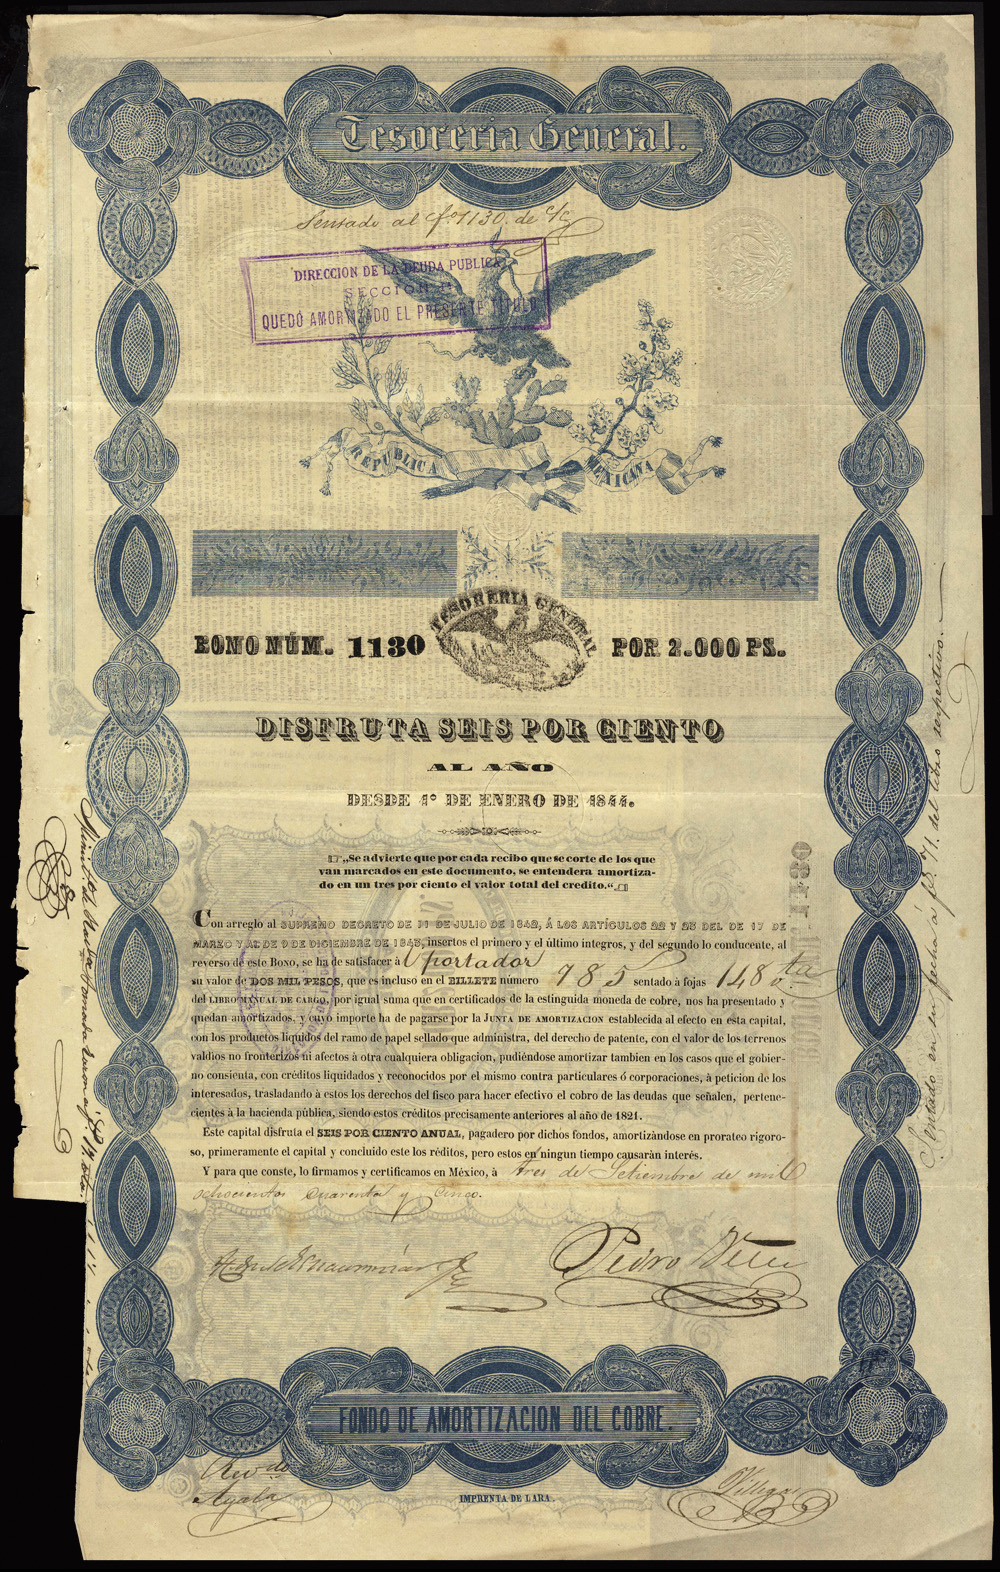 Tesoreria General.
Sentado al f.º 1130. de
DIRECCION DE LA DEUDA PUBLICA
SECCION
QUEDÓ AMORTIZADO EL PRESENTE TITULO
REPUBLICA
MEXICANA
TESORERIA GENERAL
BONO NÚM. 1130
POR 2.000 PS.
DISFRUTA SEIS POR CIENTO
AL AÑO
DESDE 1º DE ENERO DE 1844.
„Se advierte que por cada recibo que se corte de los que
van marcados en este documento, se entendera amortiza-
do en un tres por ciento el valor total del credito.“
Con arreglo al SUPREMO DECRETO DE 11 DE JULIO DE 1842, Á LOS ARTÍCULOS 22 Y 23 DEL DE 17 DE
MARZO Y AL DE 9 DE DICIEMBRE DE 1843, insertos el primero y el último íntegros, y del segundo lo conducente, al
reverso de este Bono, se ha de satisfacer á l portador
su valor de DOS MIL PESOS, que es incluso en el BILLETE número 985 sentado á fojas 148 ta
del LIBRO MANUAL DE CARGO, por igual suma que en certificados de la estinguida moneda de cobre, nos ha presentado y
quedan amortizados, y cuyo importe ha de pagarse por la JUNTA DE AMORTIZACION establecida al efecto en esta capital,
con los productos líquidos del ramo de papel sellado que administra, del derecho de patente, con el valor de los terrenos
valdíos no fronterizos ni afectos á otra cualquiera obligacion, pudiéndose amortizar tambien en los casos que el gobier-
no consienta, con créditos liquidados y reconocidos por el mismo contra particulares ó corporaciones, á peticion de los
interesados, trasladando á estos los derechos del fisco para hacer efectivo el cobro de las deudas que señalen, pertene-
cientes á la hacienda pública, siendo estos créditos precisamente anteriores al año de 1821.
Este capital disfruta el SEIS POR CIENTO ANUAL, pagadero por dichos fondos, amortizándose en prorateo rigoro-
so, primeramente el capital y concluido este los réditos, pero estos en ningun tiempo causarán interés.
Y para que conste, lo firmamos y certificamos en México, á tres de Setiembre de mil
ochocientos cuarenta y cinco.
Pedro
FONDO DE AMORTIZACION DEL COBRE.
Ayala
Villegas
IMPRENTA DE LARA.
Sentado en esta fecha á f.º 71. del libro respectivo.
BONO NÚM. 1130